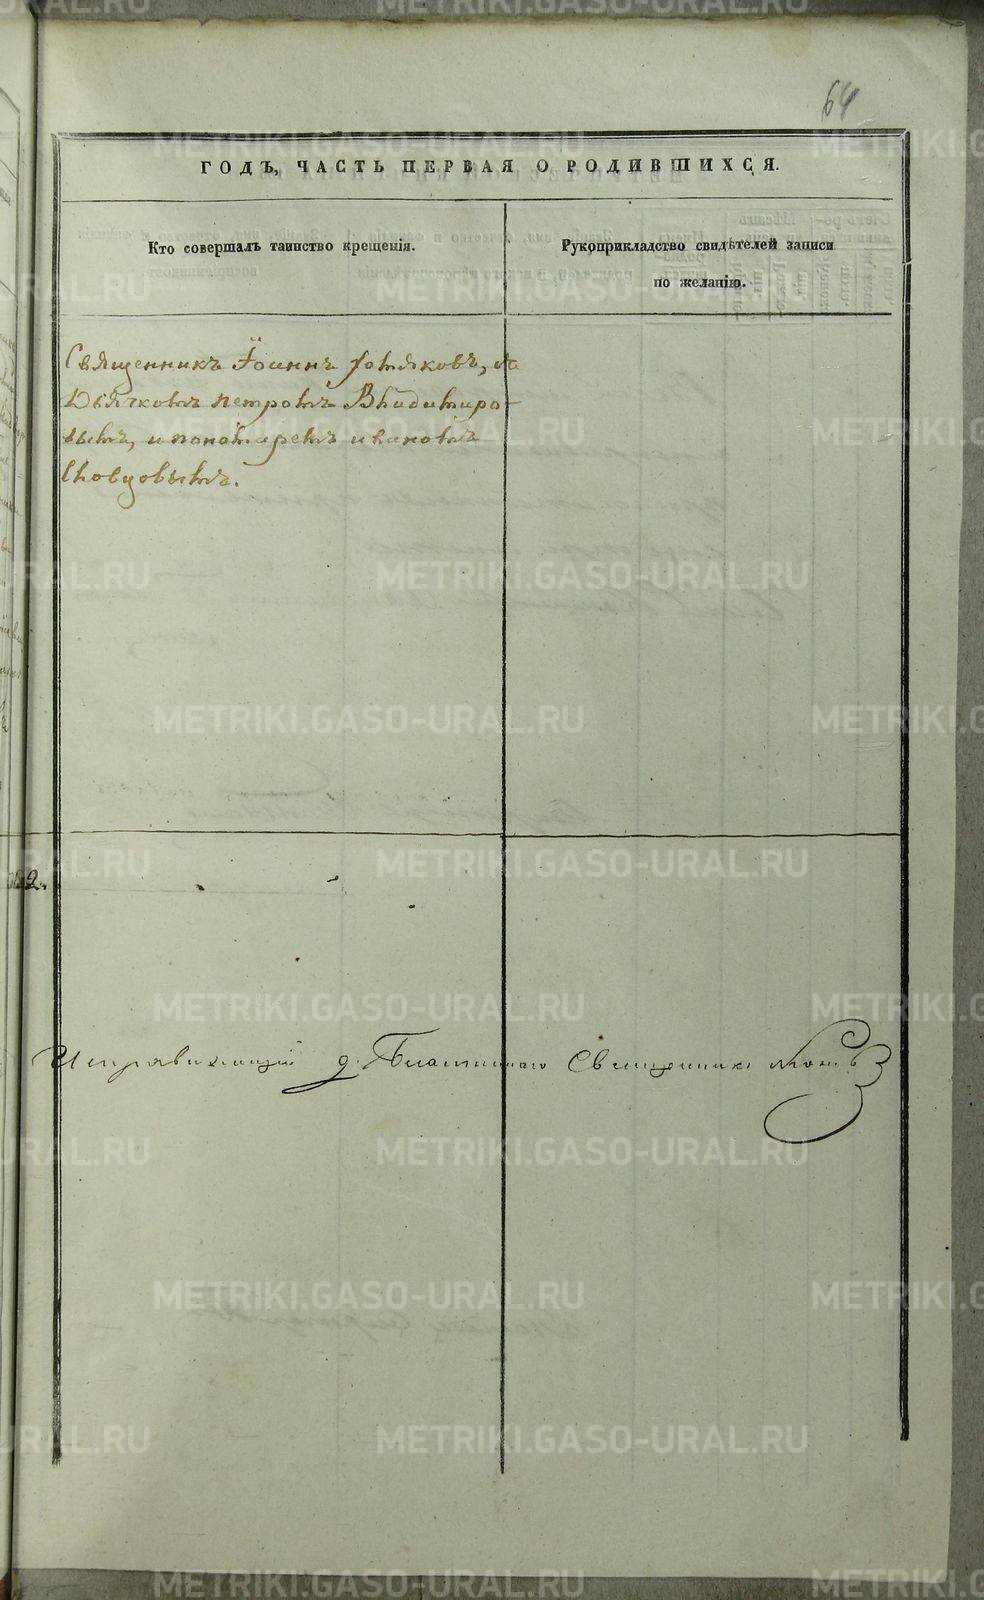 64
ГОДЪ, ЧАСТЬ ПЕРВАЯ О РОДИВШИХСЯ.
Кто совершалъ таинство крещенія.
Рукоприкладство свидѣтелей записи
по желанію.
Священникъ Іоаннъ Хотяковъ, съ
Дьячкомъ петромъ
вымъ, и пономаремъ иваномъ
Словцовымъ.
Исправляющій д. Благочиннаго Священникъ
METRIKI.GASO-URAL.RU